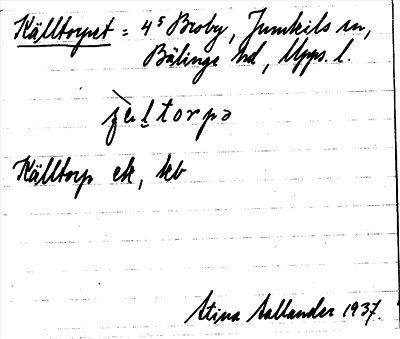 Källtorpet = 4⁵ Broby, Jumkils sn,
Bälinge hd, Upps. l.
Källtorp ek, kb
Stina Sallander 1937.